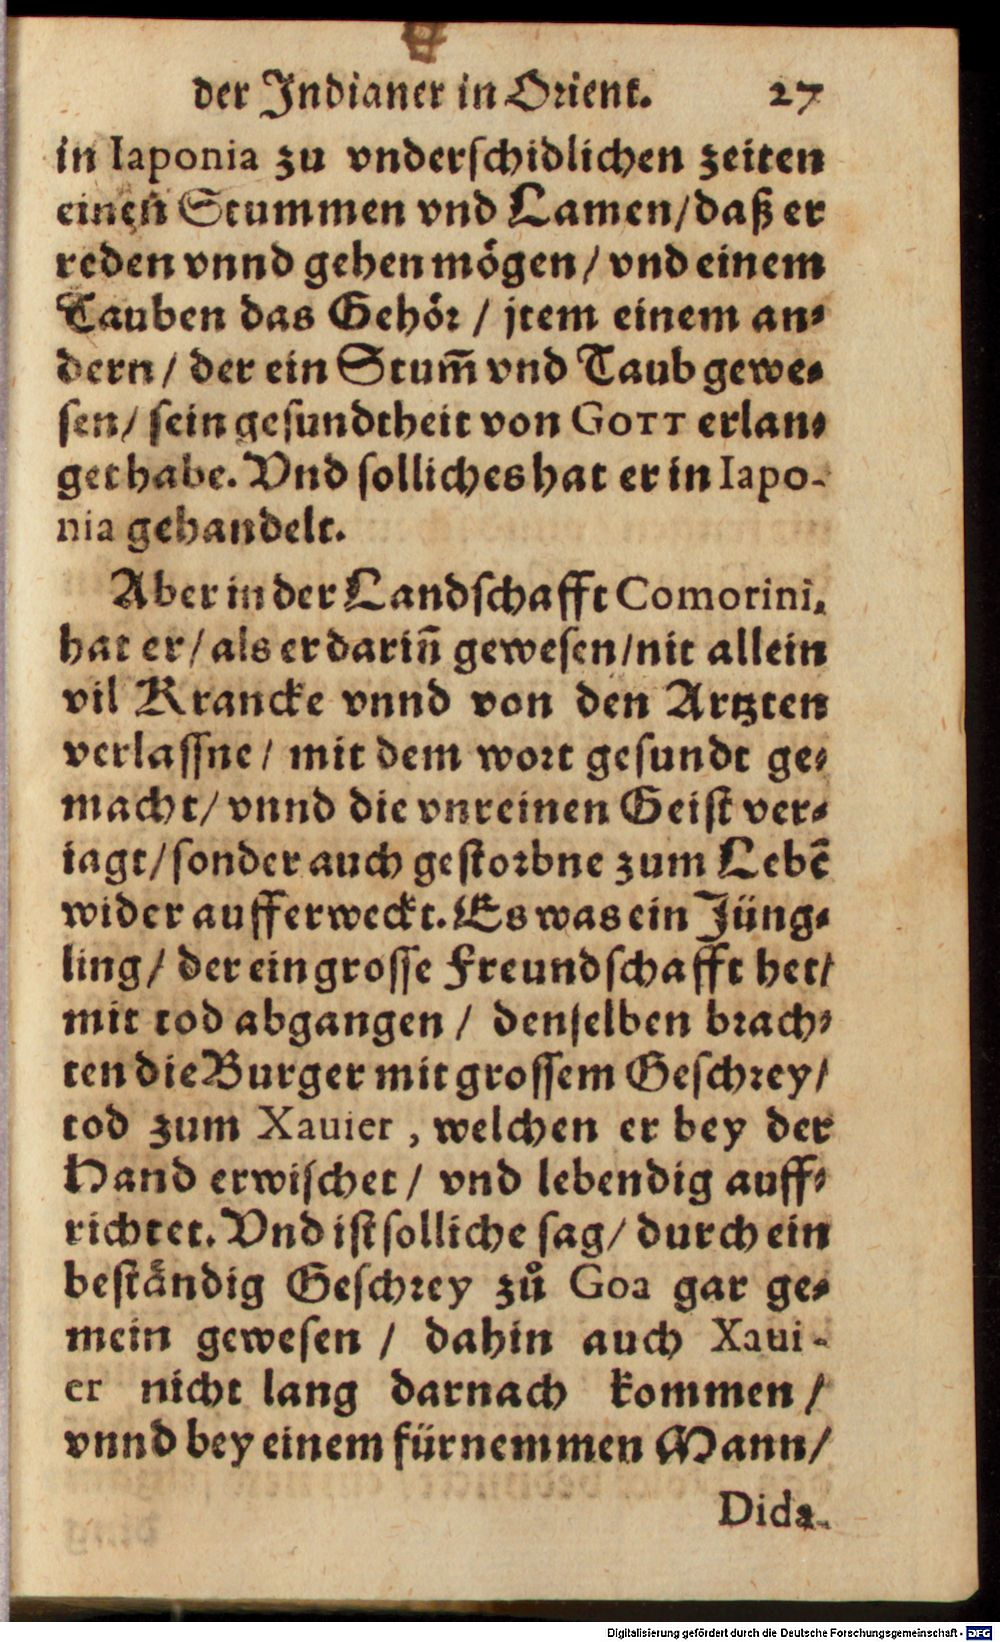 der Indianer in Orient. 27
in Iaponia zu vnderschidlichen zeiten
einen Stummen vnd Lamen/daß er
reden vnnd gehen mögen/ vnd einem
Tauben das Gehör / jtem einem an-
dern/ der ein Stum̄ vnd Taub gewe-
sen/ sein gesundtheit von GOTT erlan-
get habe. Vnd solliches hat er in Iapo-
nia gehandelt.
Aber in der Landschafft Comorini,
hat er/ als er darin̄ gewesen/nit allein
vil Krancke vnnd von den Artzten
verlassne/ mit dem wort gesundt ge-
macht/ vnnd die vnreinen Geist ver-
iagt/sonder auch gestorbne zum Lebē
wider aufferweckt. Es was ein Jüng-
ling/ der ein grosse Freundschafft het/
mit tod abgangen / denselben brach-
ten die Burger mit grossem Geschrey/
tod zum Xauier, welchen er bey der
Hand erwischet/ vnd lebendig auff-
richtet. Vnd ist solliche sag/ durch ein
beständig Geschrey zů Goa gar ge-
mein gewesen / dahin auch Xaui-
er nicht lang darnach kommen /
vnnd bey einem fürnemmen Mann/
Dida-
Digitalisierung gefördert durch die Deutsche Forschungsgemeinschaft - DFG